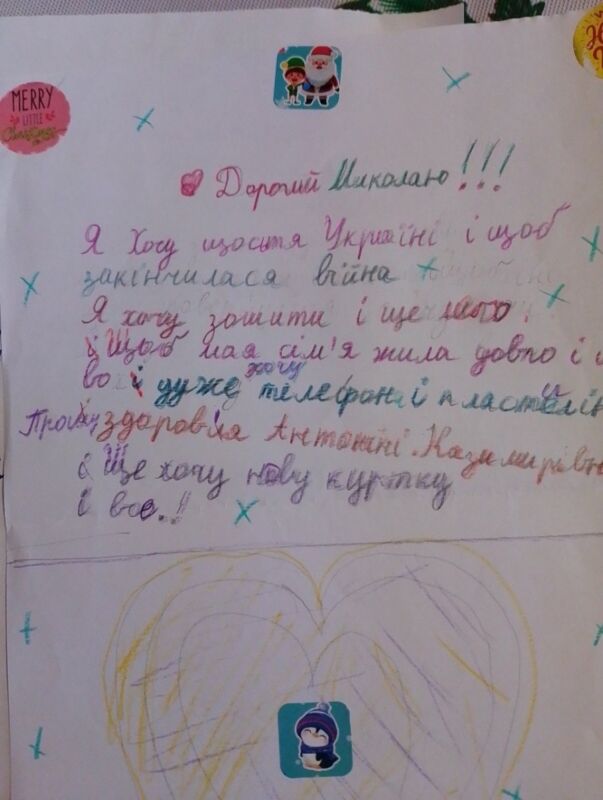 MERRY
LITTLE
Christmas
Дорогий Миколаю!!!
Я хочу щастя Україні і щоб
закінчилася війна
Я хочу зошити і ще лего.
і щоб моя сім'я жила довго і
і дуже хочу телефон і пластилін
Прошу здоров'я Антоніні Казимирівн
і ще хочу нову куртку
і все.!